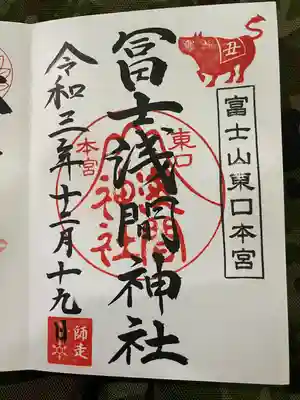 丑
富士山東口本宮
冨士浅間神社
東口
本宮
淺間
神社
令和三年十二月十九日
師走